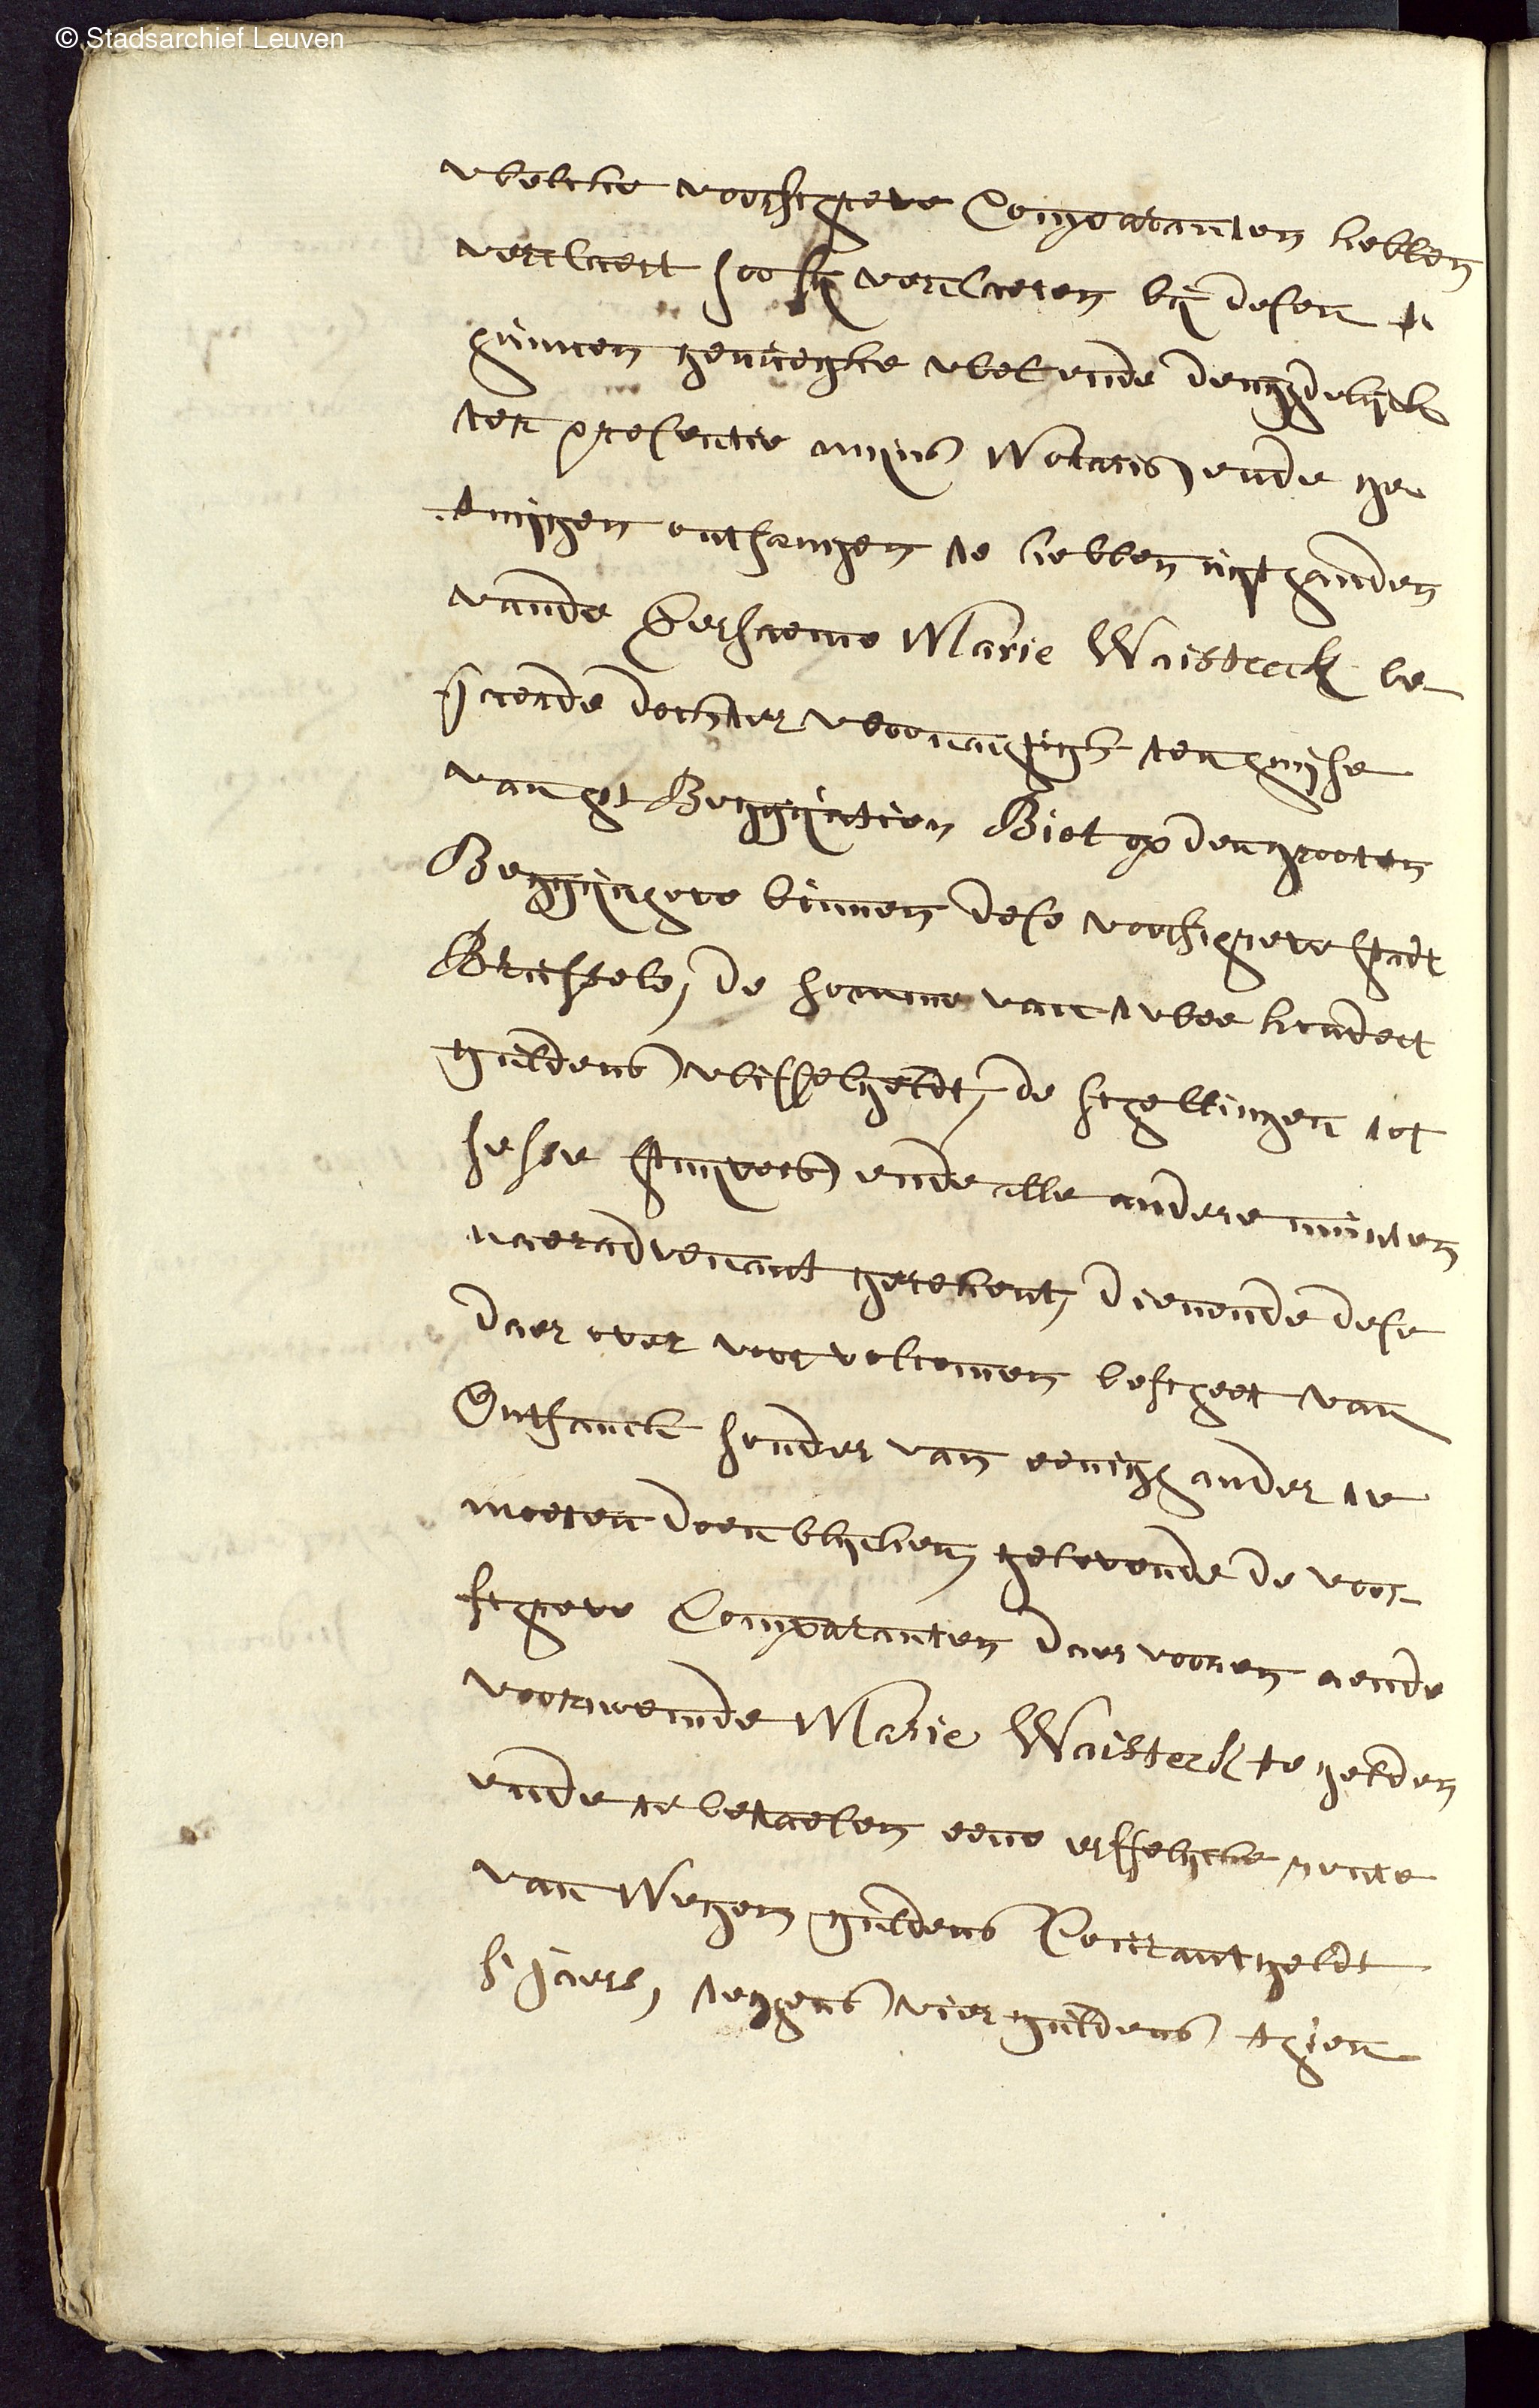 © Stadsarchief Leuven
welcke voorschreve Comparanten hebben
verclaert soo sy verclaeren by desen te
hunnen genuechte wel ende deughdelyck
ter presentie myns Notaris ende ge
tuygen ontfangen te hebben uyt handen
vande Eersaeme Marie Waisteeck be
jaerde dochter woonachtigh ten huyse
van het Beggyntien Biet op den grooten
Beggynhove binnen dese voorschreve stadt
Brussele, de somme van twee hondert
guldens wisselgeldt, de schellingen tot
sesse stuyvers ende alle andere munten
naer advenant gerekent, dienende dese
daer over voor volcomen bescheet van
Ontfanck sonder van eenigh ander te
moeten doen blycken, gelovende de voor
schreve Comparanten daer vooren aende
voornoemde Marie Waisteeck te gelden
ende te betaelen eene erffelycke rente
van Negen guldens Courant geldt
s'jaers, teghens vier guldens thien